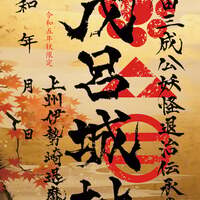 田三成公妖怪退治伝承
茂呂城址
令和五年秋限定
上州伊勢崎
和 年 月 日